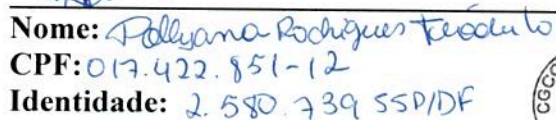 Nome: Pollyana Rodrigues Teódulo
CPF: 017.422.851-12
Identidade: 2.580.739 SSP/DF
CGCO